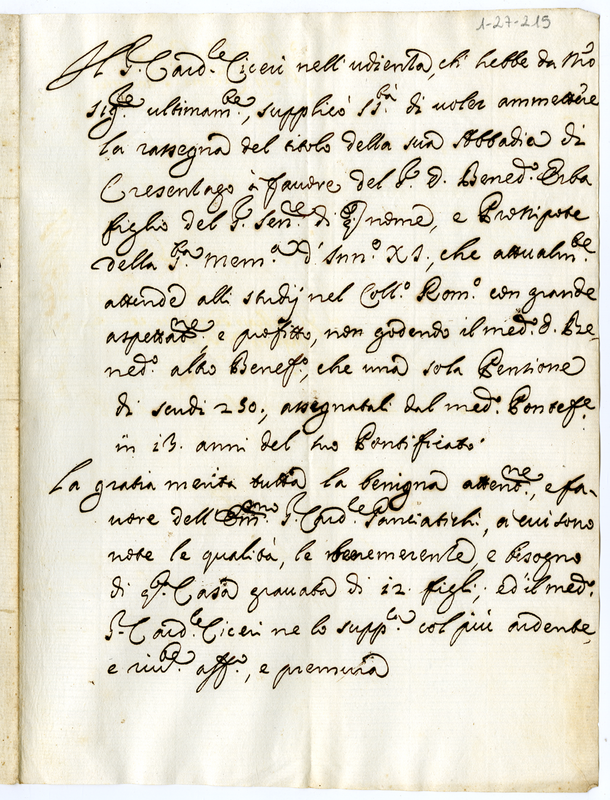 1-27-219
Il S.r Card.le Ciceri nell'udienza, ch'hebbe da N.ro
Sig.re ultimam.te, supplicò S. S.tà di voler ammettere
la rassegna del titolo della sua Abbadia di
Cresenzago à favore del S. D. Bened.o Erba
figlio del S. Sen.re di q.to nome, e Pronipote
della S.ta Mem.a d'Inn.o XI, che attualm.te
attende alli studij nel Coll.o Rom.o con grande
aspettat.ne e profitto, non godendo il med.o D. Be-
ned.o altro Benef.o, che una sola Pensione
di scudi 250, assegnatali dal med.o Pontef.e
in 13. anni del suo Pontificato
La gratia merita tutta la benigna attent.ne, e fa-
vore dell'Em.mo S. Card.le Panciatichi, a cui sono
note le qualità, le benemerenze, e bisogno
di q.ta Casa gravata di 12. figli, ed il med.o
S. Card.le Ciceri ne lo supp.ca col più ardente,
e riv.te aff.o, e premura